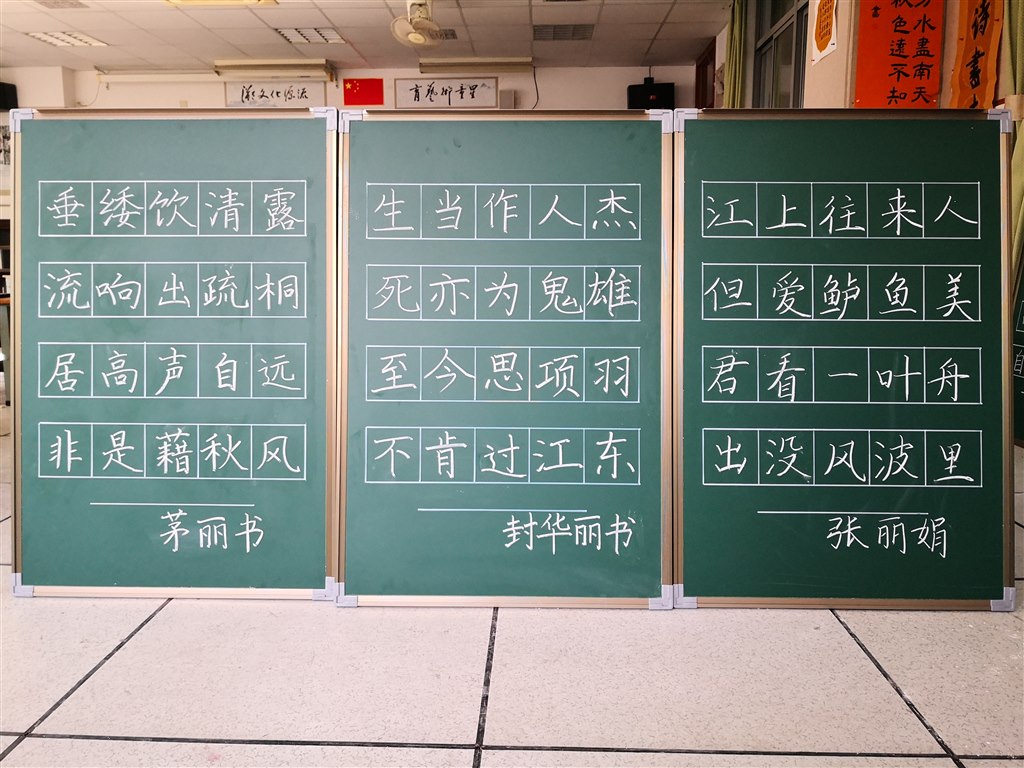 垂緌饮清露
流响出疏桐
居高声自远
非是藉秋风
茅丽书
生当作人杰
死亦为鬼雄
至今思项羽
不肯过江东
封华丽书
江上往来人
但爱鲈鱼美
君看一叶舟
出没风波里
张丽娟
水盡南天
秋色遠不知